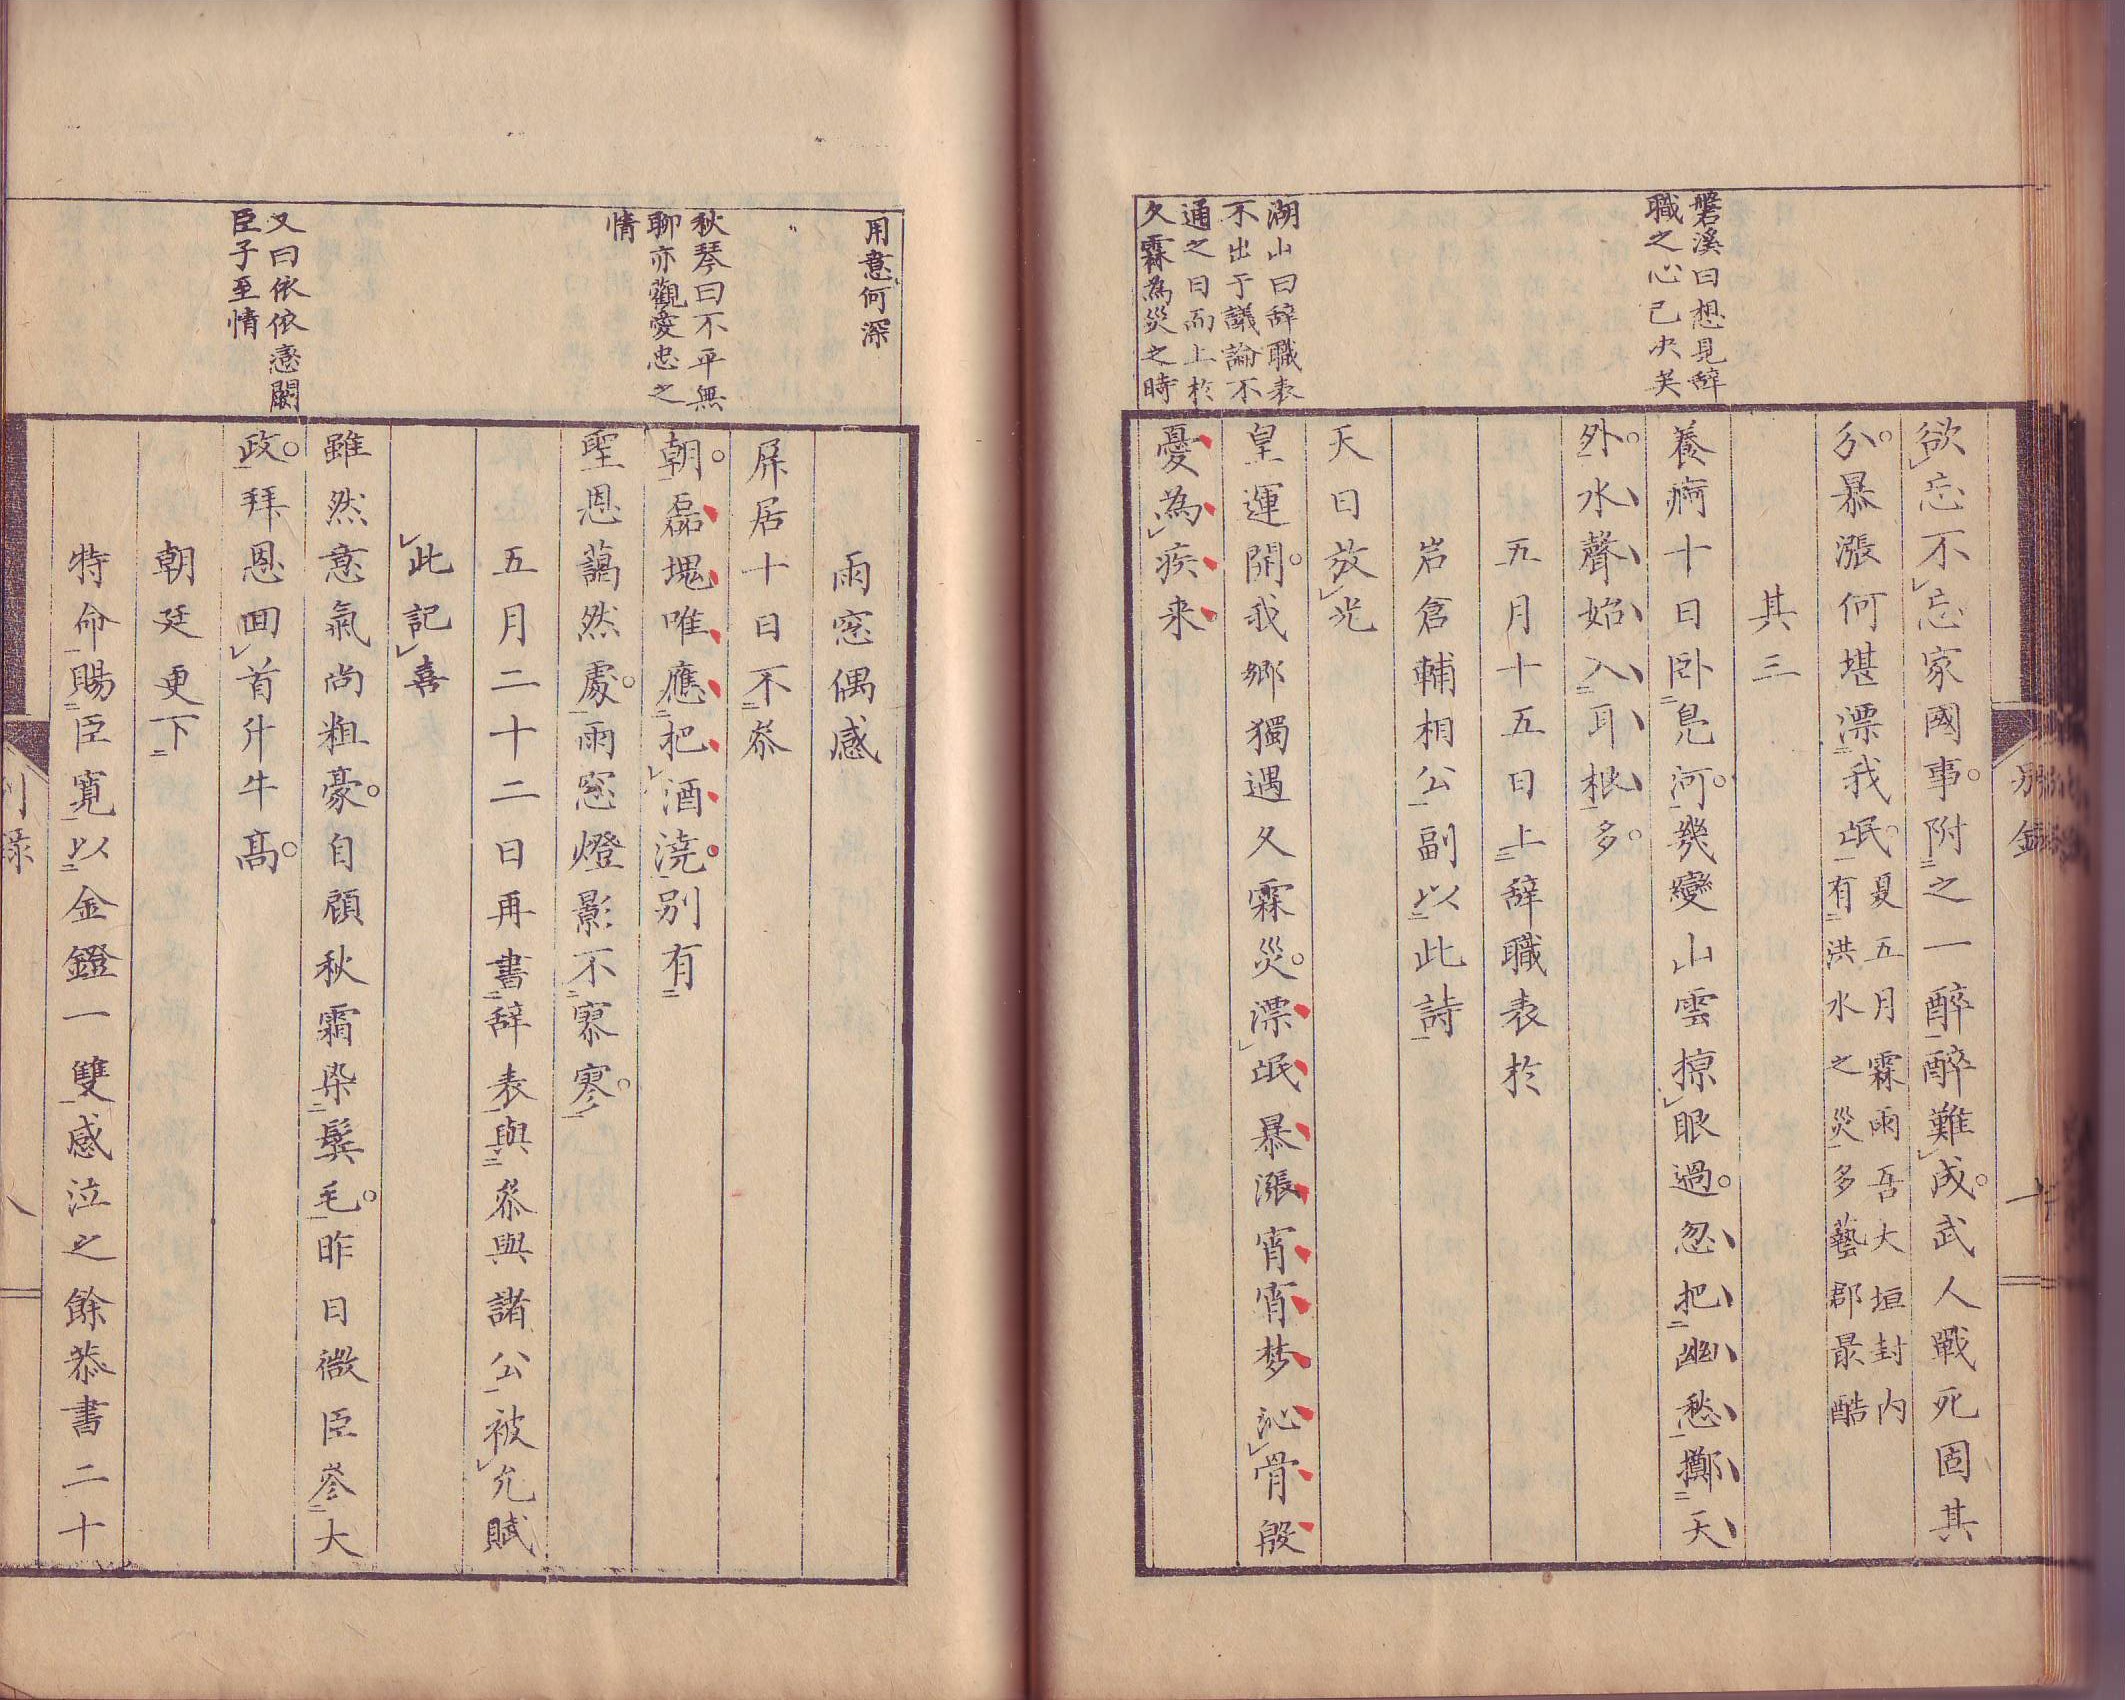 磐溪曰想見辭
職之心已决矣
湖山曰辭職表
不出于議論不
通之日而上於
久霖為災之時
欲忘不忘家國事附之一醉醉難成武人戰死固其
分暴漲何堪漂我氓夏五月霖雨吾大垣封内
有洪水之災多藝郡最酷
其三
養痾十日卧鳧河幾變山雲掠眼過忽把幽愁擲天
外水聲始入耳根多
五月十五日上辭職表於
岩倉輔相公副以此詩
天日放光
皇運開我鄉獨遇久霖災漂氓暴漲宵宵梦沁骨殷
憂為疾来
別錄
用意何深
秋琴曰不平無
聊亦觀愛忠之
情
又曰依依戀闕
臣子至情
雨窓偶感
屏居十日不叅
朝磊塊唯應把酒澆別有
聖恩藹然處雨窓燈影不寥寥
五月二十二日再書辭表與叅與諸公被允賦
此記喜
雖然意氣尚粗豪自顧秋霜染鬓毛昨日微臣叅大
政拜恩囬首廾牛高
朝廷更下
特命賜臣寛以金鐙一雙感泣之餘恭書二十